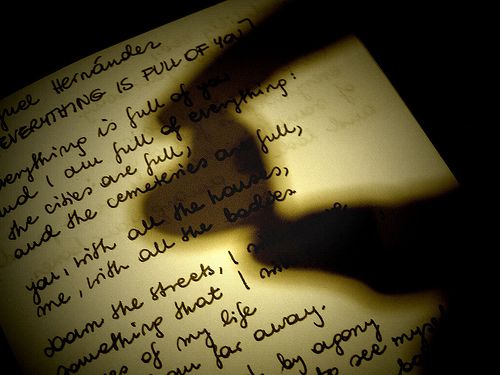 Hernández
EVERYTHING IS FULL OF YOU
everything is full of you
and I am full of everything:
the cities are full,
and the cemeteries are full,
you, with all the houses,
me, with all the bodies.
down the streets, I
something that I
of my life
far away.
by agony
to see myself